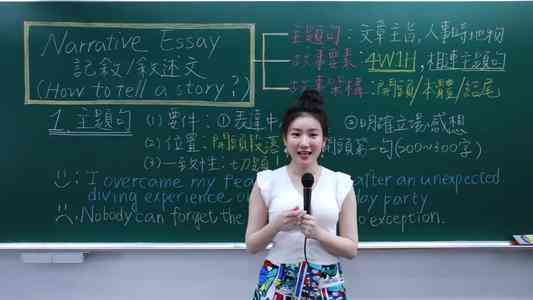 Narrative Essay
記敘/敘述文
(How to tell a story?)
主題句：文章主旨，人事時地物
故事要素：4W1H，相連主題句
故事架構：開頭/本體/結尾
1. 主題句
(1) 要件：①表達中
②明確立場感想
(2) 位置：開頭段落
開頭第一句(200~300字)
(3) 一致性：切題！
I overcame my fea
after an unexpected
diving experience
Nobody can forget the
day party
exception.